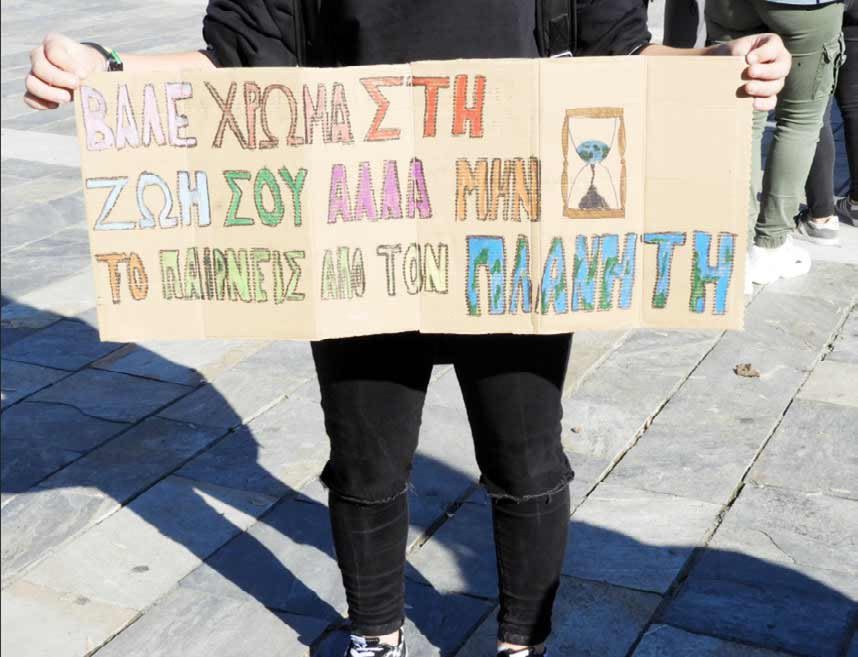 ΒΑΛΕ ΧΡΩΜΑ ΣΤΗ
ΖΩΗ ΣΟΥ ΑΛΛΑ ΜΗΝ
ΤΟ ΠΑΙΡΝΕΙΣ ΑΠΟ ΤΟΝ ΠΛΑΝΗΤΗ